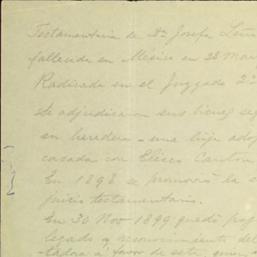 Testamentaria de Da. Josefa
fallecida en México en 28 Mar
Radicada en el Juzgado 2
Se adjudicaron sus bienes
en heredera - una hija adop
casada con Eliseo Canton
En 1898 se promovió la
juicio testamentario.
En 30 Nov 1899 quedó pag
legado y reconocimiento del
a favor de